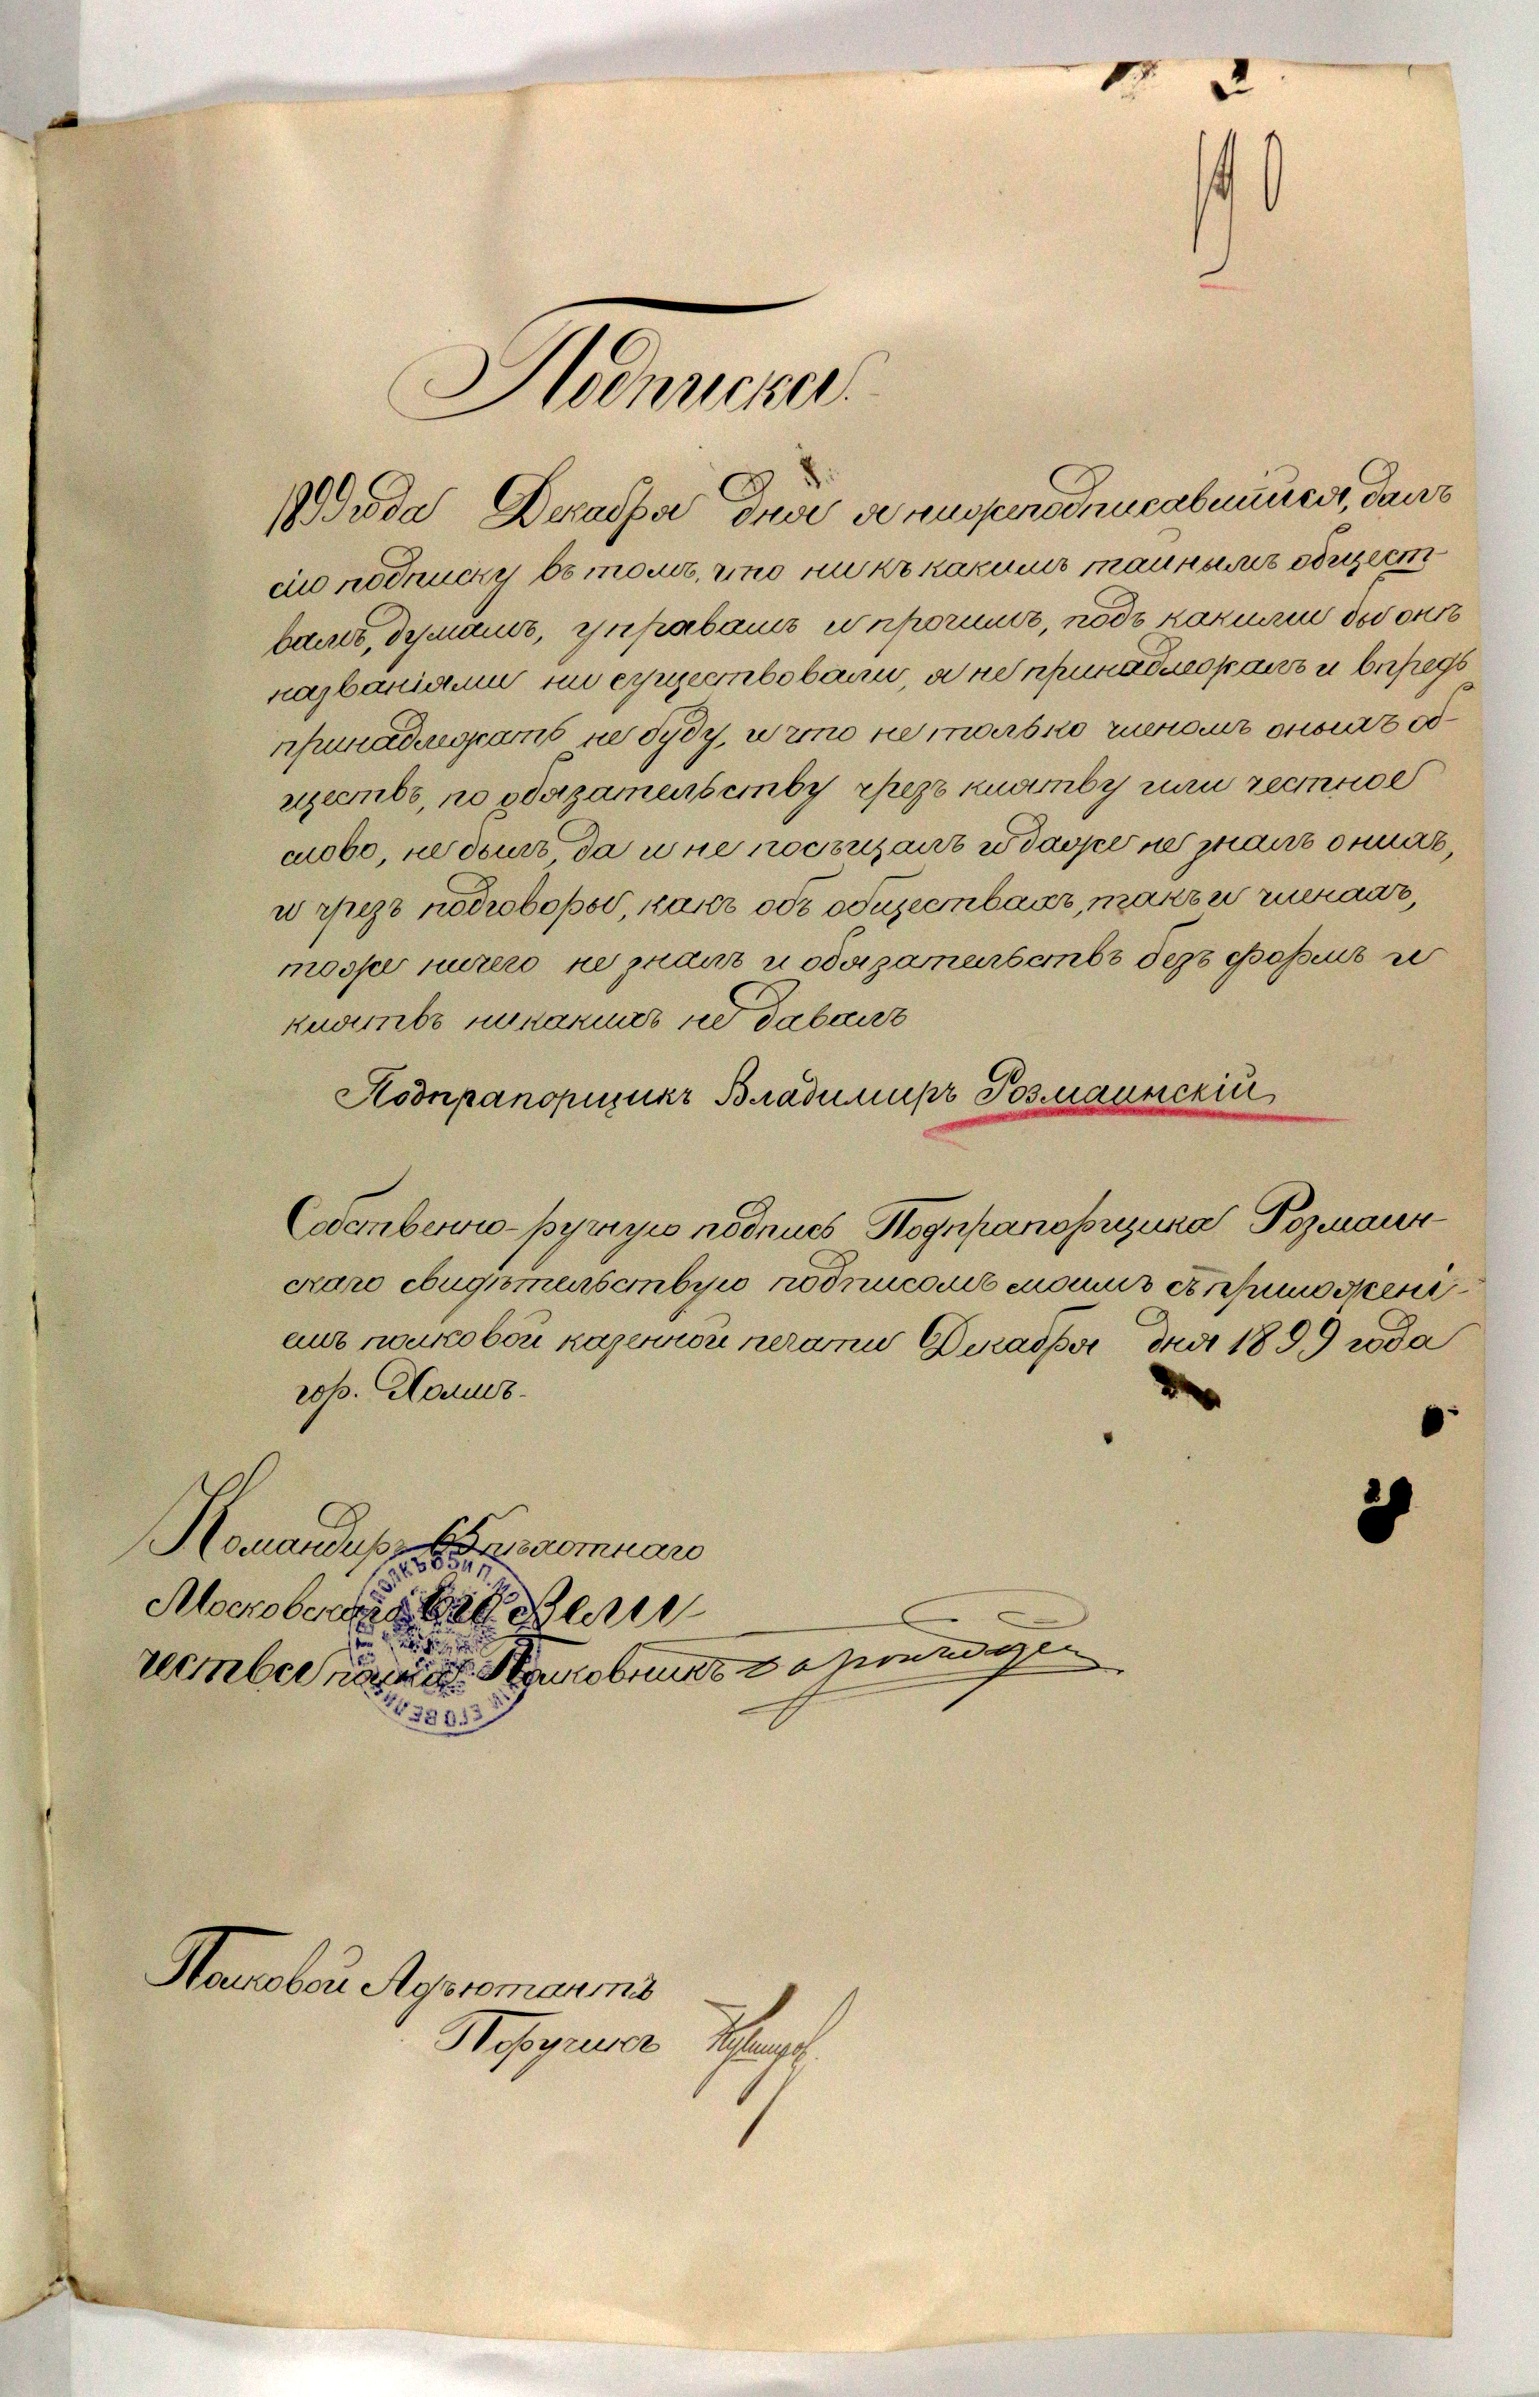 190
Подписка.
1899 года Декабря дня я нижеподписавшійся, далъ
сію подписку въ томъ, что ни къ какимъ тайнымъ общест-
вамъ, думамъ, управамъ и прочимъ, подъ какими бы онѣ
названіями ни существовали, я не принадлежалъ и впредь
принадлежать не буду, и что не только членомъ оныхъ об-
ществъ, по обязательству чрезъ клятву или честное
слово, не былъ, да и не посѣщалъ и даже не зналъ о нихъ,
и чрезъ подговоры, какъ объ обществахъ, такъ и членахъ,
тоже ничего не зналъ и обязательствъ безъ формъ и
клятвъ никакихъ не давалъ
Подпрапорщикъ Владимиръ Розмаинскій
Собственно-ручную подпись Подпрапорщика Розмаин-
скаго свидѣтельствую подписомъ моимъ съ приложені-
емъ полковой казенной печати Декабря дня 1899 года
гор. Холмъ.
Командиръ 65 пѣхотнаго
Московскаго Его Вели-
чества полка Полковникъ
Полковой Адъютантъ
Поручикъ